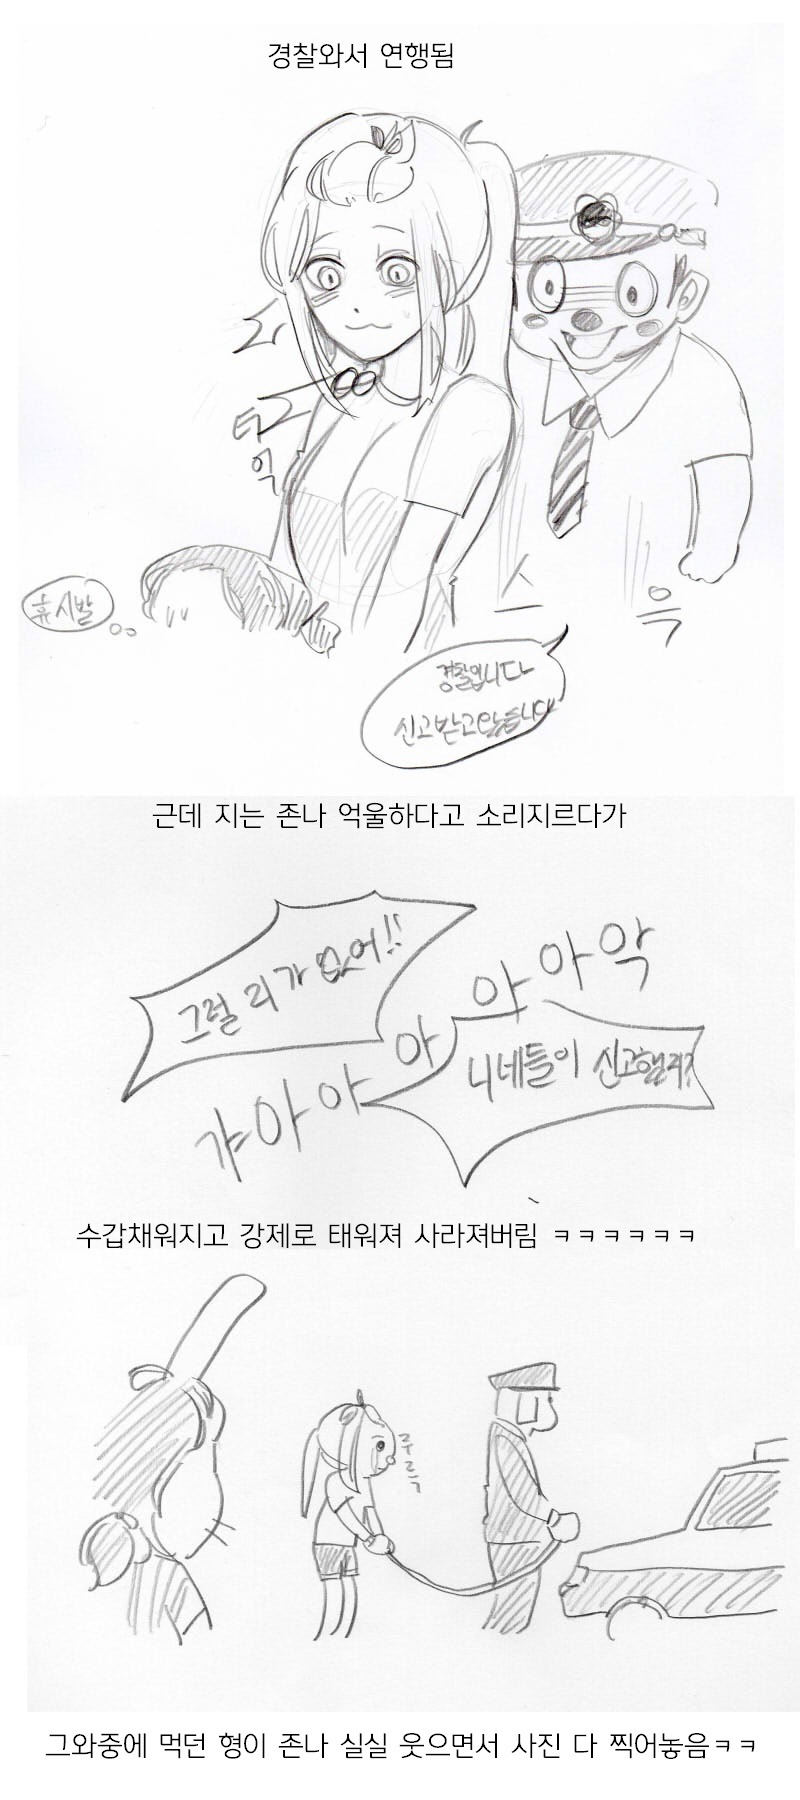 경찰와서 연행됨
터
억
휴 시발
스
윽
경찰입니다
신고받고왔습니다
근데 지는 존나 억울하다고 소리지르다가
그럴 리가 없어!!
갸아아아아아악
니네들이 신고했지?
수갑채워지고 강제로 태워져 사라져버림 ㅋㅋㅋㅋㅋㅋ
주르륵
그와중에 먹던 형이 존나 실실 웃으면서 사진 다 찍어놓음ㅋㅋ